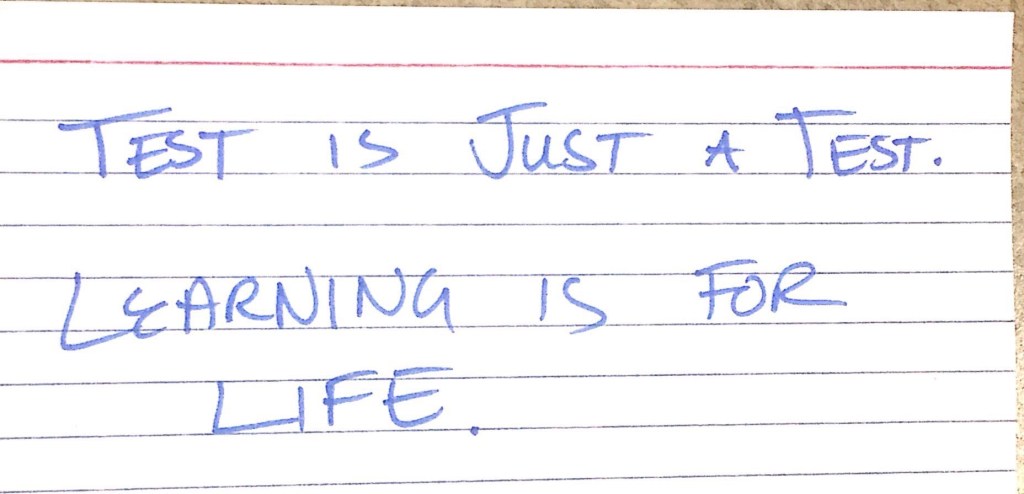 TEST IS JUST A TEST.
LEARNING IS FOR
LIFE.